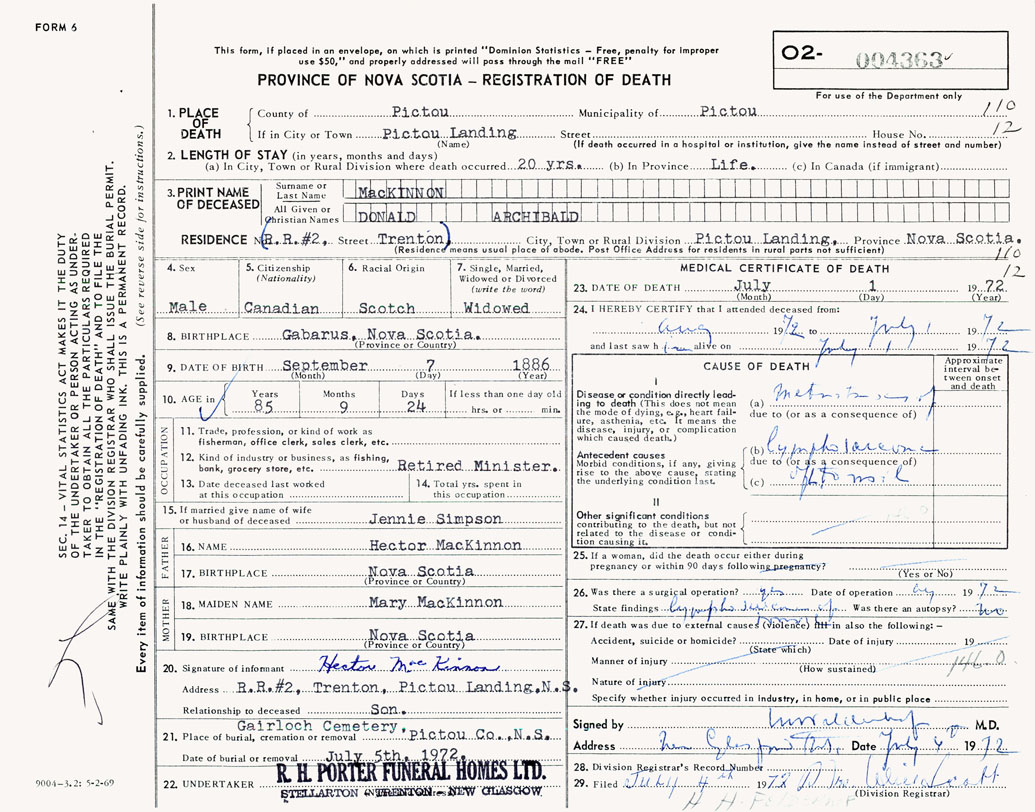 FORM 6
This form, if placed in an envelope, on which is printed "Dominion Statistics – Free, penalty for improper
use $50," and properly addressed will pass through the mail "FREE"
PROVINCE OF NOVA SCOTIA – REGISTRATION OF DEATH
O2- 004363
For use of the Department only
110
12
1. PLACE OF DEATH
County of Pictou Municipality of Pictou
If in City or Town Pictou Landing Street House No.
(Name) (If death occurred in a hospital or institution, give the name instead of street and number)
2. LENGTH OF STAY (in years, months and days)
(a) In City, Town or Rural Division where death occurred 20 yrs. (b) In Province Life. (c) In Canada (if immigrant)
3. PRINT NAME OF DECEASED
Surname or Last Name MacKINNON
All Given or Christian Names DONALD ARCHIBALD
RESIDENCE No R.R.#2, Street Trenton City, Town or Rural Division Pictou Landing, Province Nova Scotia.
(Residence means usual place of abode. Post Office Address for residents in rural parts not sufficient)
110
12
4. Sex
Male
5. Citizenship
(Nationality)
Canadian
6. Racial Origin
Scotch
7. Single, Married,
Widowed or Divorced
(write the word)
Widowed
8. BIRTHPLACE Gabarus, Nova Scotia.
(Province or Country)
9. DATE OF BIRTH September 7 1886
(Month) (Day) (Year)
10. AGE in
Years Months Days If less than one day old
85 9 24 hrs. or min.
OCCUPATION
11. Trade, profession, or kind of work as
fisherman, office clerk, sales clerk, etc.
12. Kind of industry or business, as fishing,
bank, grocery store, etc. Retired Minister.
13. Date deceased last worked
at this occupation
14. Total yrs. spent in
this occupation
15. If married give name of wife
or husband of deceased Jennie Simpson
FATHER
16. NAME Hector MacKinnon
17. BIRTHPLACE Nova Scotia
(Province or Country)
MOTHER
18. MAIDEN NAME Mary MacKinnon
19. BIRTHPLACE Nova Scotia
(Province or Country)
20. Signature of informant Hector MacKinnon
Address R.R.#2, Trenton, Pictou Landing, N.S.
Relationship to deceased Son.
Gairloch Cemetery,
21. Place of burial, cremation or removal Pictou Co., N.S.
Date of burial or removal July 5th, 1972.
22. UNDERTAKER R. H. PORTER FUNERAL HOMES LTD.
STELLARTON - TRENTON - NEW GLASGOW
MEDICAL CERTIFICATE OF DEATH
23. DATE OF DEATH July 1 19 72
(Month) (Day) (Year)
24. I HEREBY CERTIFY that I attended deceased from:
Aug 1972 to July 1 1972
and last saw him alive on July 1 1972
CAUSE OF DEATH
Approximate
interval be-
tween onset
and death
I
Disease or condition directly lead-
ing to death (This does not mean
the mode of dying, e.g., heart fail-
ure, asthenia, etc. It means the
disease, injury, or complication
which caused death.)
(a) Metastases of
due to (or as a consequence of)
Antecedent causes
Morbid conditions, if any, giving
rise to the above cause, stating
the underlying condition last.
(b) lymphosarcoma
due to (or as a consequence of)
(c) of tonsil
II
Other significant conditions
contributing to the death, but not
related to the disease or condi-
tion causing it.
25. If a woman, did the death occur either during
pregnancy or within 90 days following pregnancy?
(Yes or No)
26. Was there a surgical operation? yes Date of operation Aug 1972
State findings lymphosarcoma of Was there an autopsy? no
27. If death was due to external causes (violence) fill in also the following: –
Accident, suicide or homicide? Date of injury 19
(State which)
Manner of injury 146.0
(How sustained)
Nature of injury
Specify whether injury occurred in industry, in home, or in public place
Signed by M.D.
Address New Glasgow Date July 4 1972
28. Division Registrar's Record Number
29. Filed July 4th 1972
(Division Registrar)
SEC. 14 – VITAL STATISTICS ACT MAKES IT THE DUTY
OF THE UNDERTAKER OR PERSON ACTING AS UNDER-
TAKER TO OBTAIN ALL THE PARTICULARS REQUIRED
IN THE "REGISTRATION OF DEATH" AND TO FILE THE
SAME WITH THE DIVISION REGISTRAR WHO SHALL ISSUE THE BURIAL PERMIT.
WRITE PLAINLY WITH UNFADING INK. THIS IS A PERMANENT RECORD.
Every item of information should be carefully supplied. (See reverse side for instructions.)
9004-3.2: 5-2-69